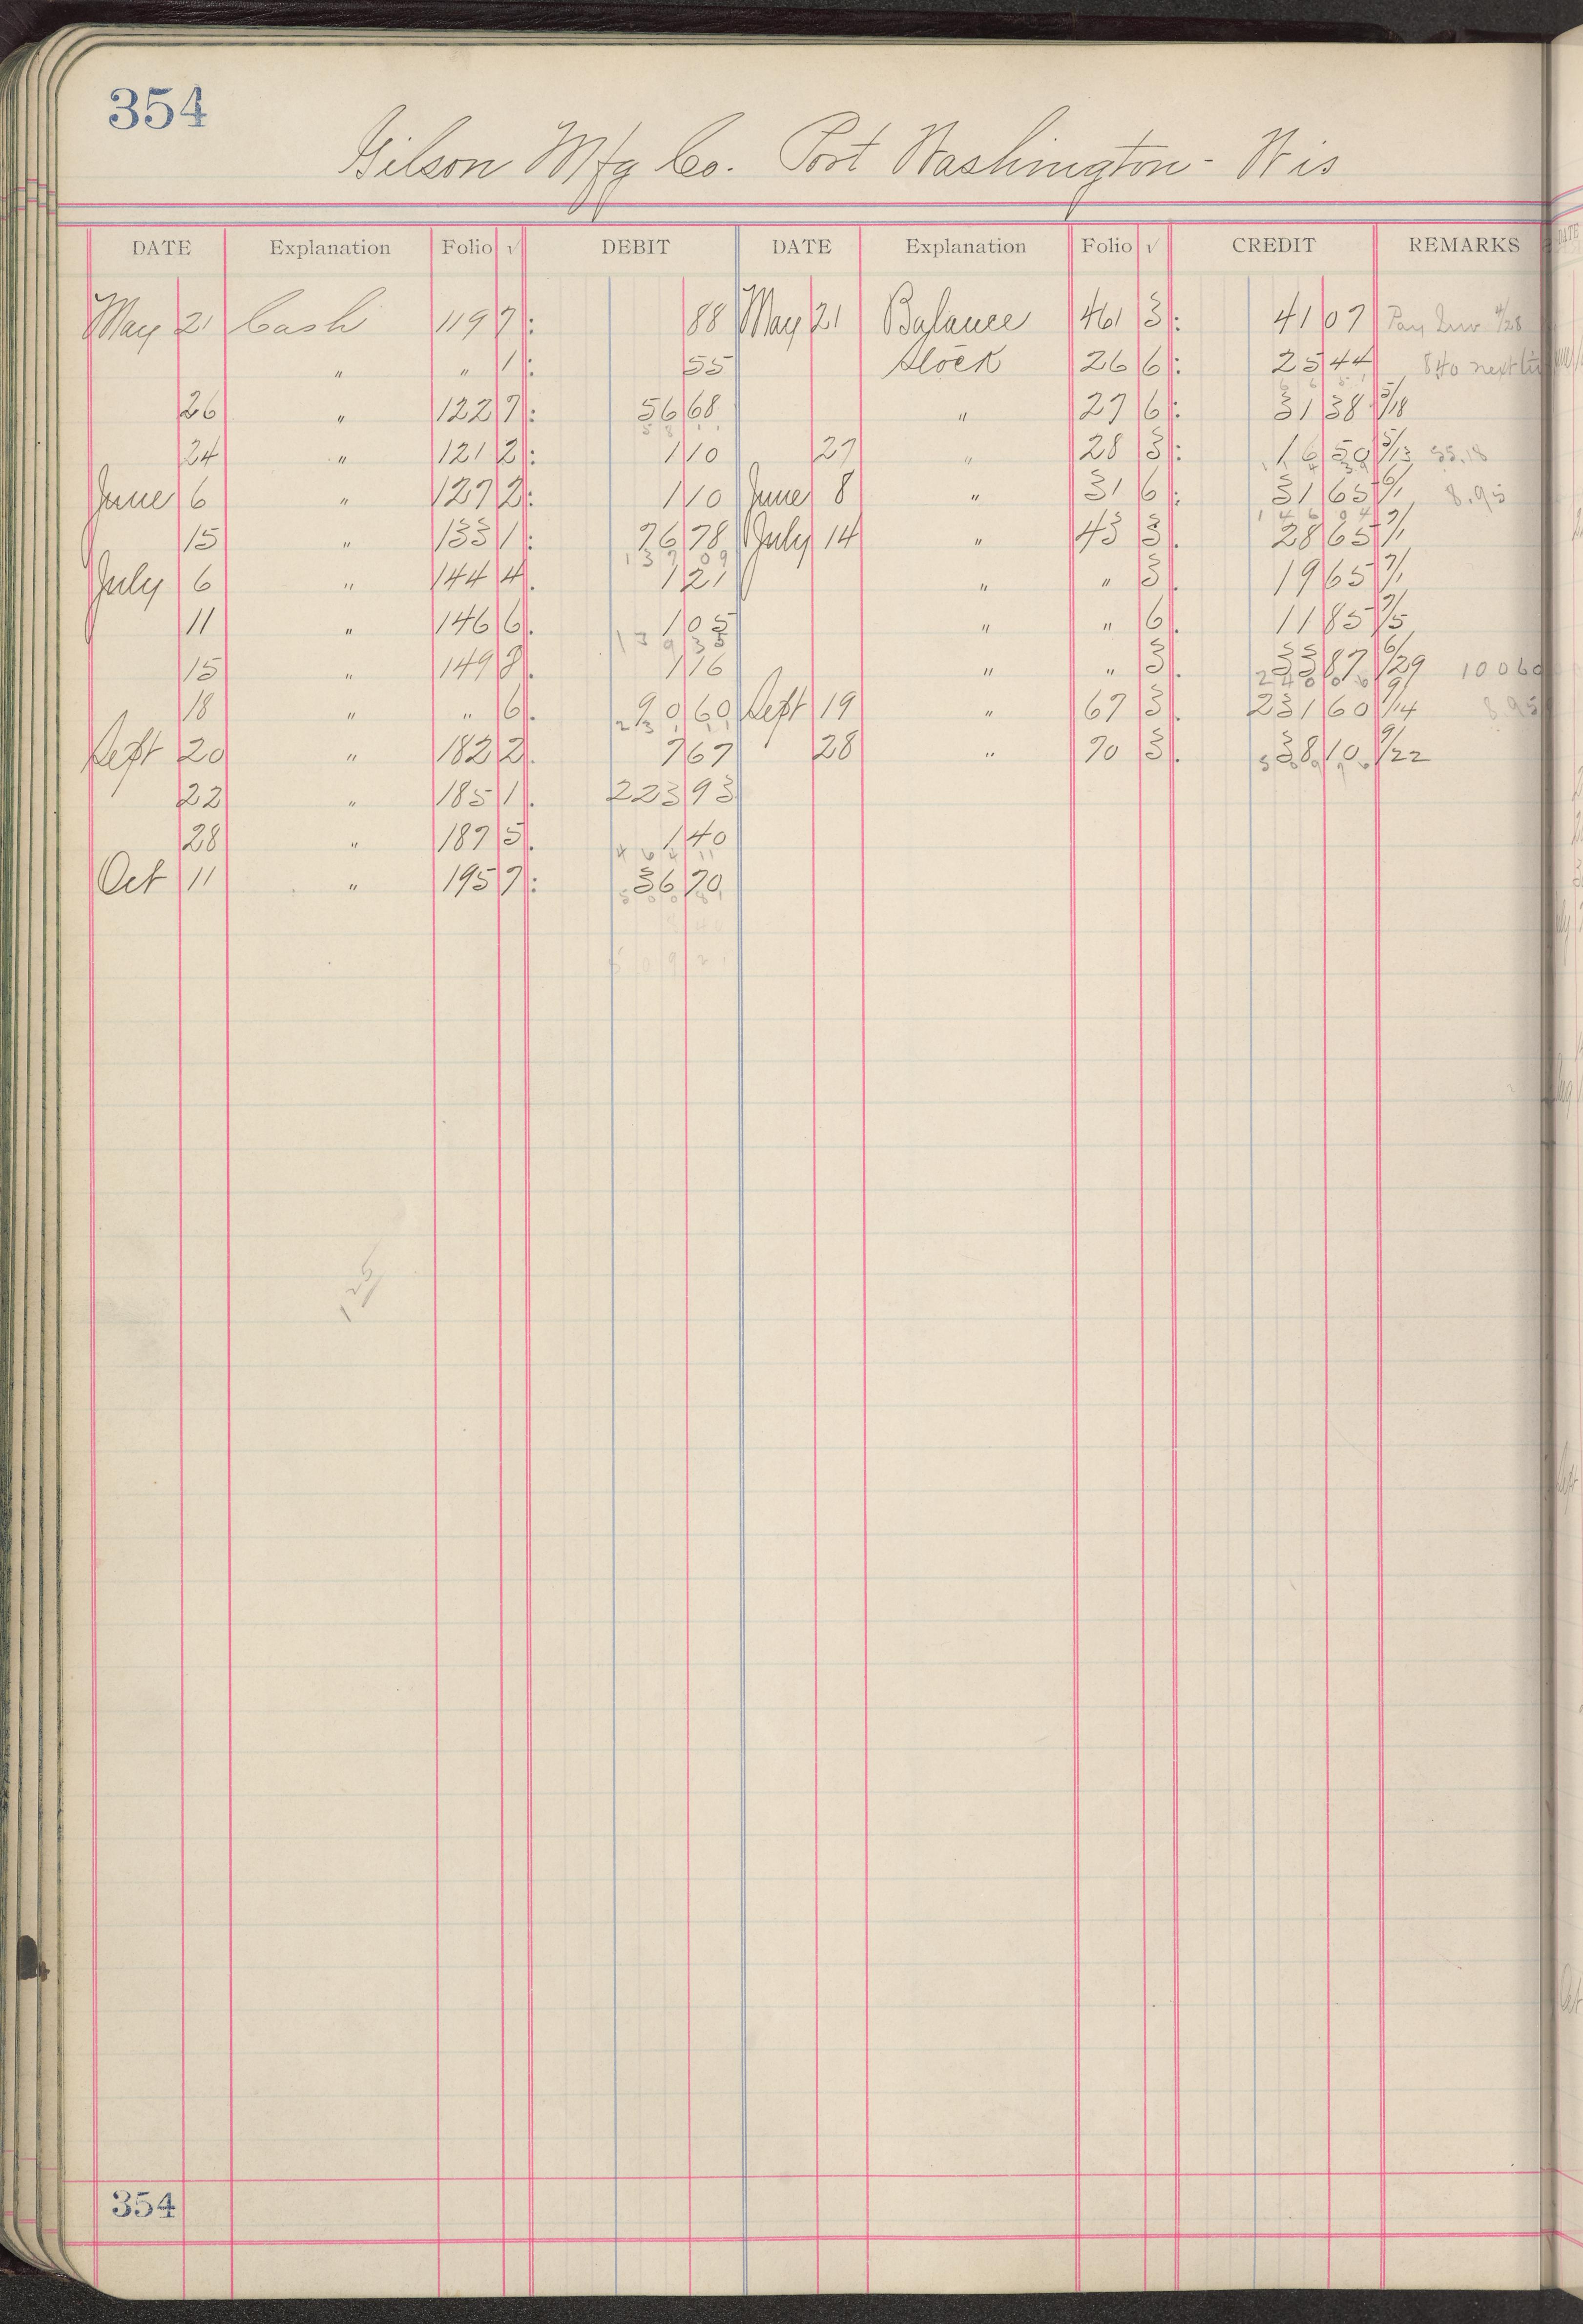 354
Gilson Mfg Co. Port Washington - Wis
DATE Explanation Folio √ DEBIT DATE Explanation Folio √ CREDIT REMARKS
May 21 Cash 119 7 : 88 May 21 Balance 461 3 : 41 07 Pay Inv 4/28
" " 1 : 55 Stock 26 6 : 25 44 840 next
26 " 122 7 : 56 68 " 27 6 : 31 38 5/18
24 " 121 2 : 1 10 27 " 28 3 : 16 50 5/13 55.18
June 6 " 127 2 : 1 10 June 8 " 31 6 : 31 65 6/1 8.95
15 " 133 1 : 76 78 July 14 " 43 3 . 28 65 7/1
137 09
July 6 " 144 4 . 1 21 " " 3 . 19 65 7/1
11 " 146 6 . 1 05 " " 6 . 11 85 7/5
139 35
15 " 149 8 . 1 16 " " 3 . 33 87 6/29 100 60
18 " " 6 . 90 60 Sept 19 " 67 3 . 231 60 9/14 8.95
Sept 20 " 182 2 . 7 67 28 " 70 3 . 38 10 9/22
22 " 185 1 . 223 93
28 " 187 5 . 1 40
Oct 11 " 195 7 : 36 70
354